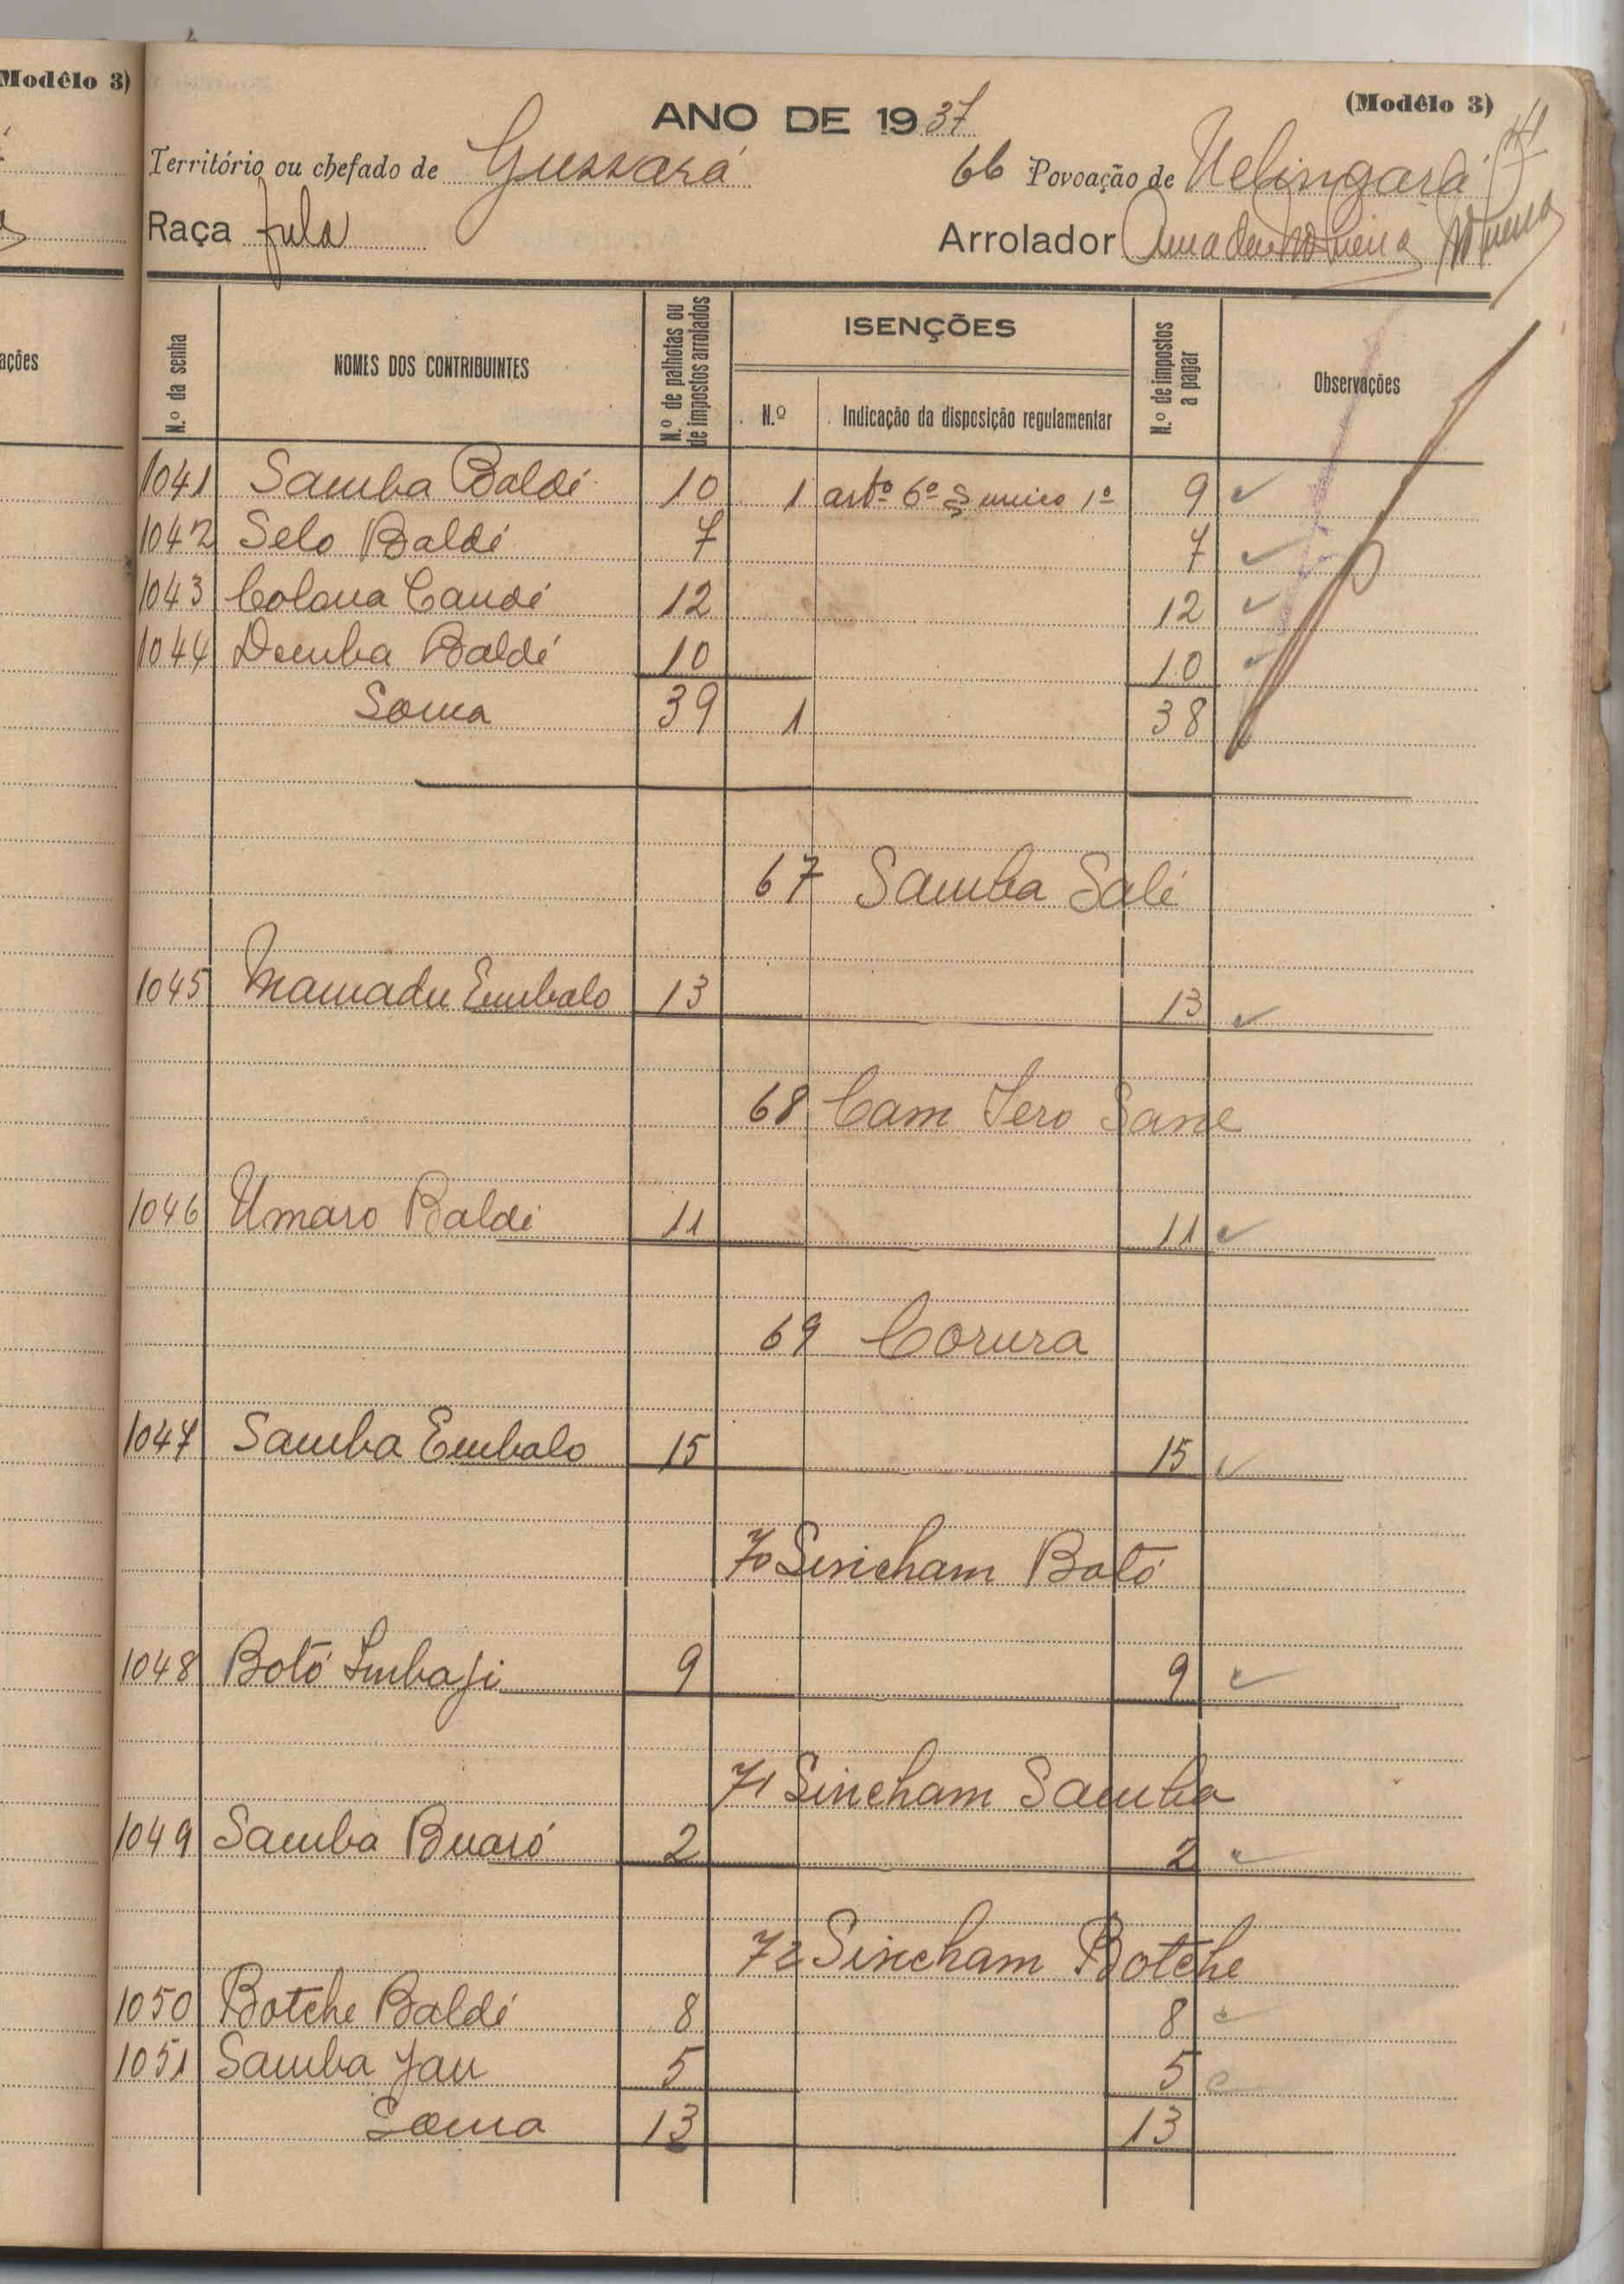 Modêlo 3)
(Modêlo 3)
ANO DE 1937
Território ou chefado de Gussará
66 Povoação de Uelingará
Raça fula
Arrolador
ações
N.º da senha
NOMES DOS CONTRIBUINTES
N.º de palhotas ou de impostos arrolados
ISENÇÕES
N.º
Indicação da disposição regulamentar
N.º de impostos a pagar
Observações
1041 Samba Baldé 10 1 artº 6º § unico 1º 9
1042 Selo Baldé 7 7
1043 Colona Candé 12 12
1044 Demba Baldé 10 10
Soma 39 1 38
67 Samba Salé
1045 Mamadu Embalo 13 13
68 Cam Sero Sane
1046 Umaro Baldé 11 11
69 Corura
1047 Samba Embalo 15 15
70 Sincham Botó
1048 Botó 9 9
71 Sincham Samba
1049 Samba Buaró 2 2
72 Sincham Botche
1050 Botche Baldé 8 8
1051 Samba Jau 5 5
Soma 13 13